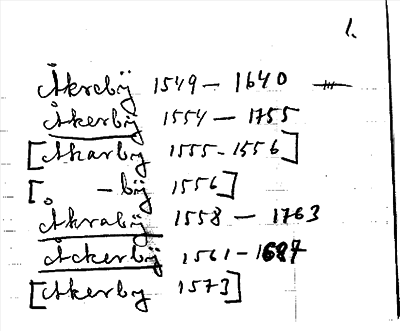 1.
Åkrebÿ 1549 – 1640
Åkerbÿ 1554 – 1755
[Akarby 1555-1556]
[ – bÿ 1556]
Åkrabÿ 1558 – 1763
Åckerbÿ 1561-1687
[Akerby 1573]